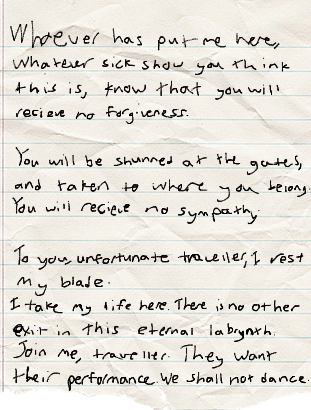 Whoever has put me here,
whatever sick show you think
this is, know that you will
recieve no forgiveness.
You will be shunned at the gates,
and taken to where you belong.
You will recieve no sympathy.
To you, unfortunate traveller, I rest
my blade.
I take my life here. There is no other
exit in this eternal labrynth.
Join me, traveller. They want
their performance. We shall not dance.